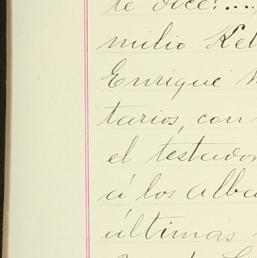 te dice:....
milio Kel
Enrique
tarios, con
el testador
á los alba
últimas